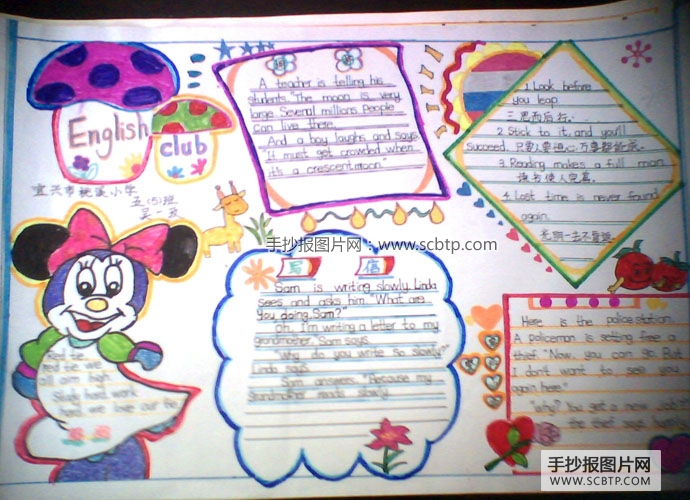 English
club
宜兴市桃溪小学
五(5)班
A teacher is telling his
students. "The moon is very
large. Several millions people
can live there.
And a boy laughs and says.
"It must get crowded when
it's a crescent moon."
1. Look before
you leap
三思而后行.
2. Stick to it, and you'll
succeed.
3. Reading makes a full man.
读书使人完善.
4. Lost time is never found
again.
光阴一去不复返
手抄报图片网:www.scbtp.com
写 信
Sam is writing slowly. Linda
sees and asks him. "What are
you doing, Sam?"
Oh, I'm writing a letter to my
grandmother. Sam says.
"Why do you write so slowly?"
Linda says.
Sam answers. "Because my
Grandmother reads slowly
Red tie
red tie we
all arm high
Study hard work
hard we love our
Here is the police station.
A policeman is setting free a
thief "Now, you can go. But
I don't want to see you
again here."
"Why? You get a new
the thief says
手抄报图片网
WWW.SCBTP.COM